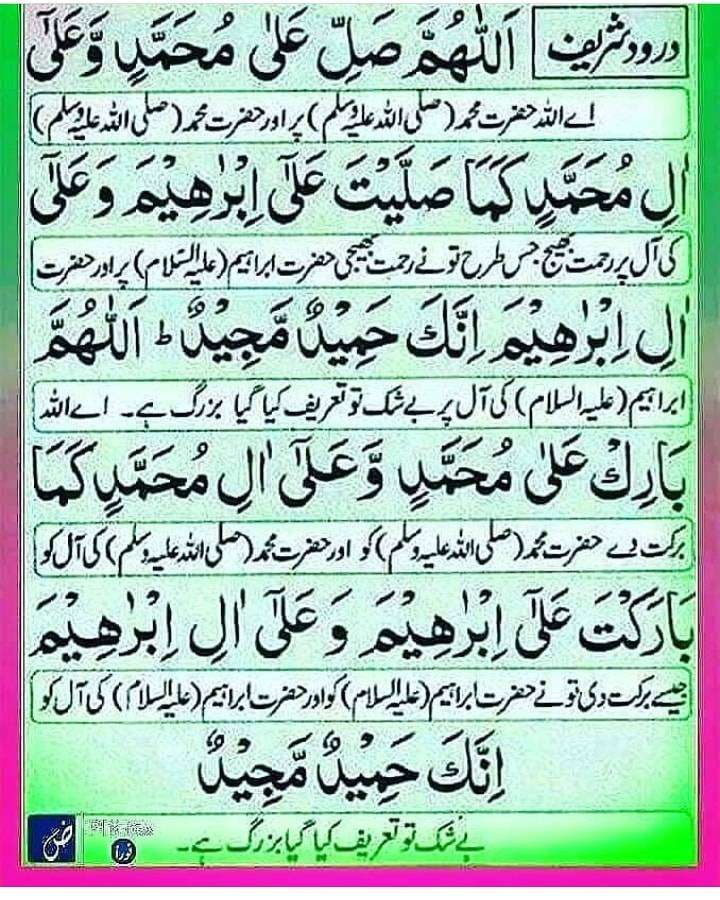 درود شریف
اَللّٰهُمَّ صَلِّ عَلٰی مُحَمَّدٍ وَّعَلٰٓی
اے اللہ حضرت محمد (صلی اللہ علیہ وسلم) پر اور حضرت محمد (صلی اللہ علیہ وسلم)
اٰلِ مُحَمَّدٍ کَمَا صَلَّیْتَ عَلٰٓی اِبْرٰهِیْمَ وَعَلٰٓی
کی آل پر رحمت بھیج جس طرح تو نے رحمت بھیجی حضرت ابراہیم (علیہ السلام) پر اور حضرت
اٰلِ اِبْرٰهِیْمَ اِنَّكَ حَمِیْدٌ مَّجِیْدٌ ط اَللّٰهُمَّ
ابراہیم (علیہ السلام) کی آل پر بے شک تو تعریف کیا گیا بزرگ ہے۔ اے اللہ
بَارِكْ عَلٰی مُحَمَّدٍ وَّعَلٰٓی اٰلِ مُحَمَّدٍ کَمَا
برکت دے حضرت محمد (صلی اللہ علیہ وسلم) کو اور حضرت محمد (صلی اللہ علیہ وسلم) کی آل کو
بَارَکْتَ عَلٰٓی اِبْرٰهِیْمَ وَعَلٰٓی اٰلِ اِبْرٰهِیْمَ
جیسے برکت دی تو نے حضرت ابراہیم (علیہ السلام) کو اور حضرت ابراہیم (علیہ السلام) کی آل کو
اِنَّكَ حَمِیْدٌ مَّجِیْدٌ
بے شک تو تعریف کیا گیا بزرگ ہے۔